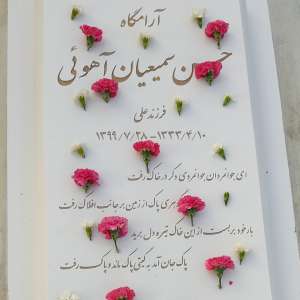 آرامگاه
حسن سمیعیان آهوئی
فرزند علی
۱۳۳۳/۴/۱۰ - ۱۳۹۹/۷/۲۸
ای جوانمردان جوانمردی دگر در خاک رفت
گوهری پاک از زمین بر جانب افلاک رفت
بار خود بربست از این خاک تیره دل برید
پاک جان آمد به گیتی پاک ماند و پاک رفت